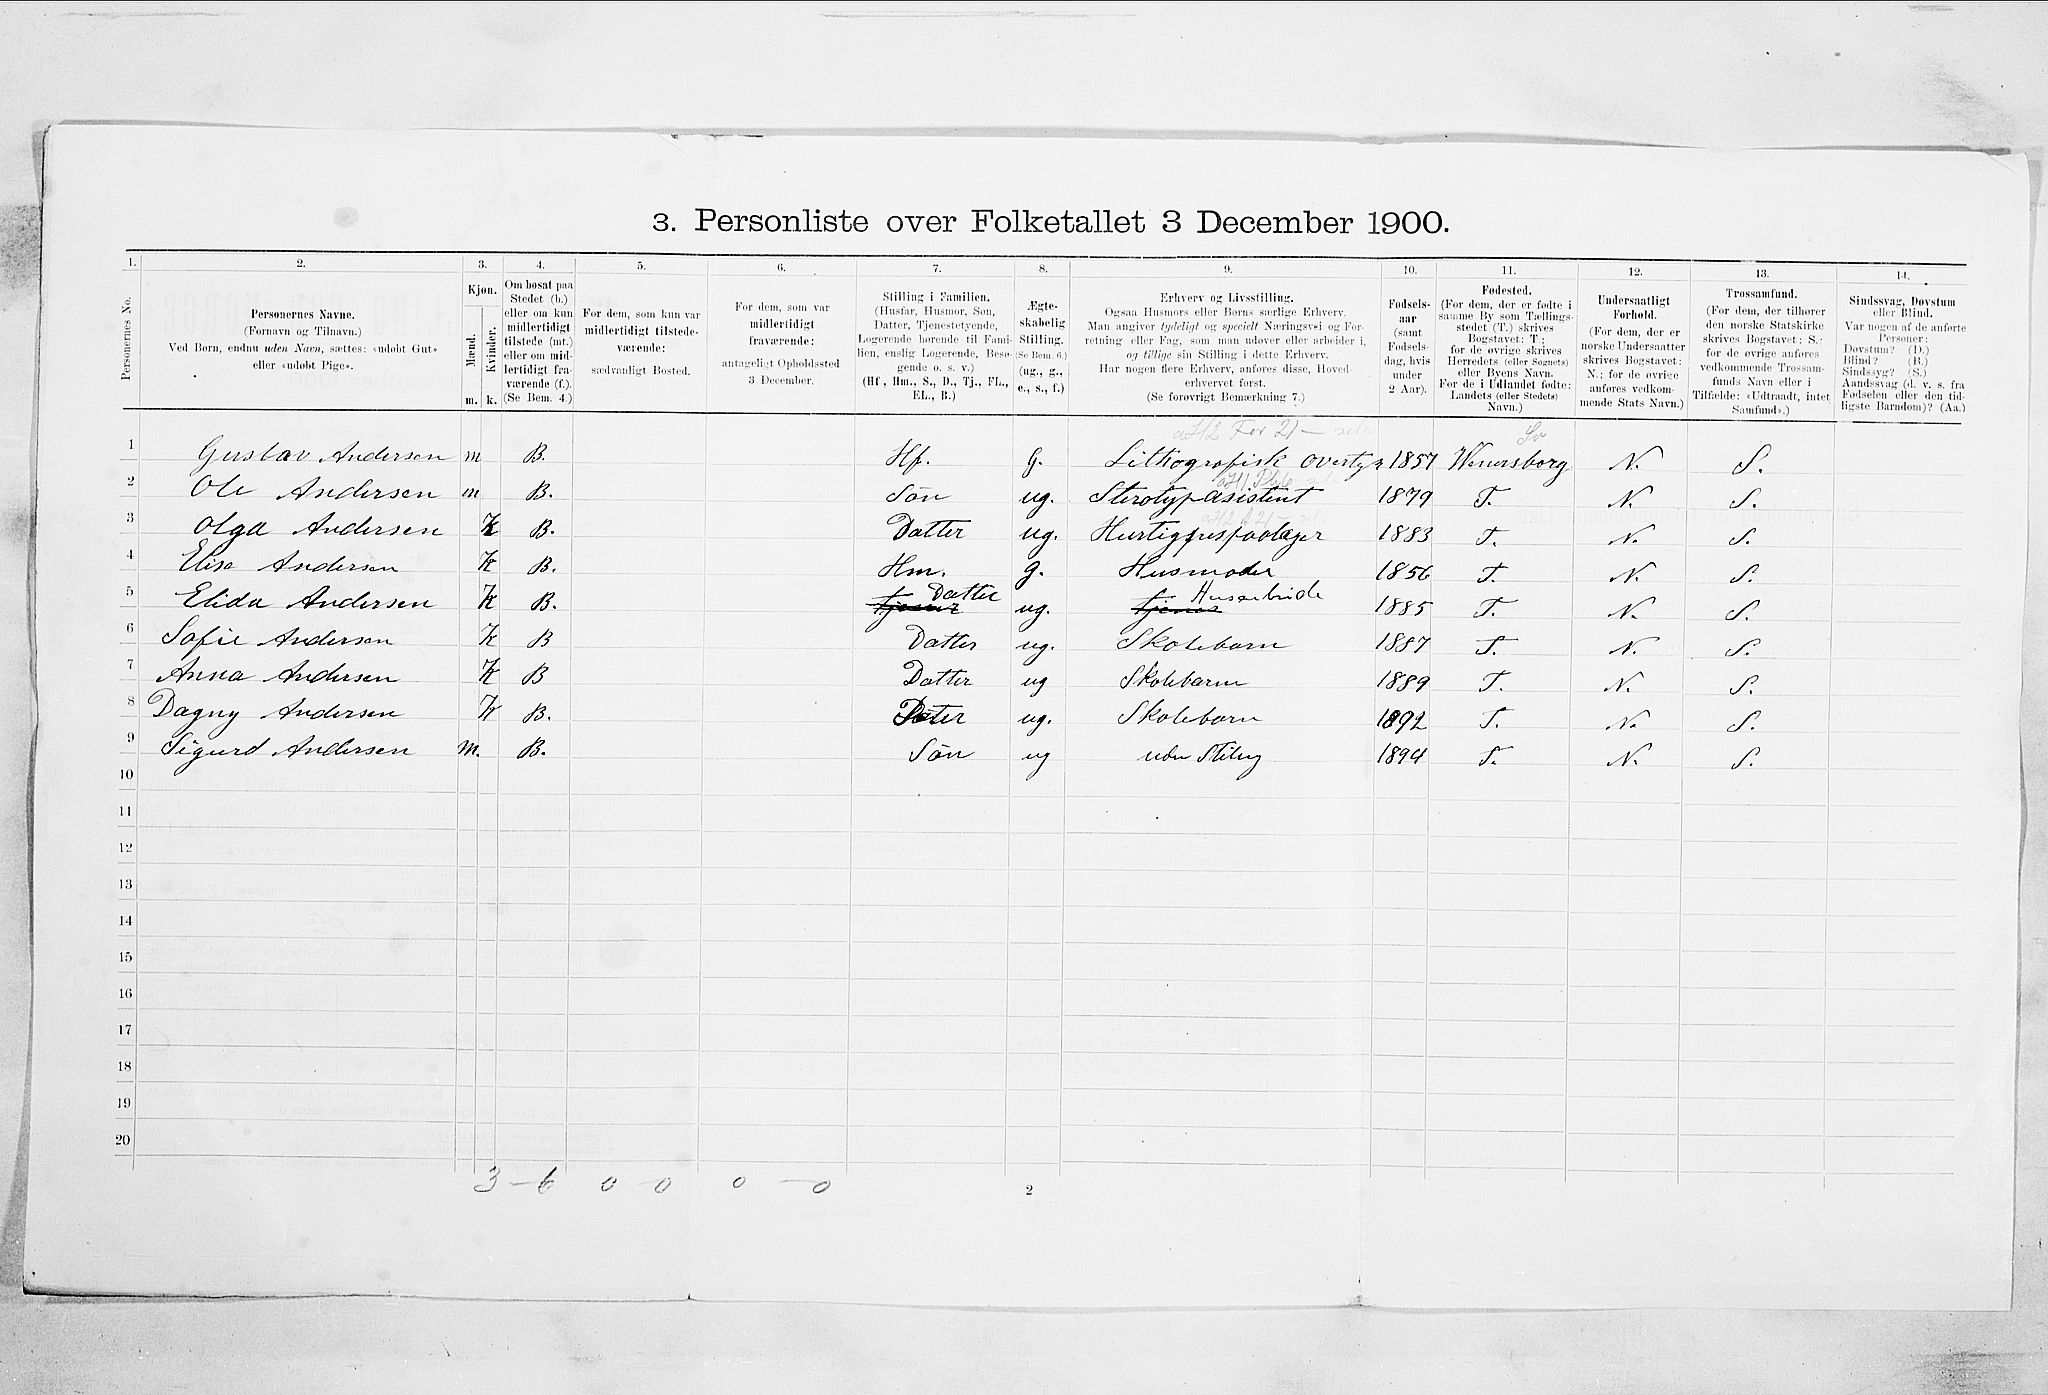 3. Personliste over Folketallet 3 December 1900.
1. 2. 3. 4. 5. 6. 7. 8. 9. 10. 11. 12. 13. 14.
Personernes No.
Personernes Navne.
(Fornavn og Tilnavn.)
Ved Børn, endnu uden Navn, sættes: «udøbt Gut»
eller «udøbt Pige».
Kjøn.
Mænd.
Kvinder.
m. k.
Om bosat paa
Stedet (b.)
eller om kun
midlertidigt
tilstede (mt.)
eller om mid-
lertidigt fra-
værende (f.).
(Se Bem. 4.)
For dem, som kun var
midlertidigt tilstede-
værende:
sædvanligt Bosted.
For dem, som var
midlertidigt
fraværende:
antageligt Opholdssted
3 December.
Stilling i Familien.
(Husfar, Husmor, Søn,
Datter, Tjenestetyende,
Logerende hørende til Fami-
lien, enslig Logerende, Besø-
gende o. s. v.)
(Hf., Hm., S., D., Tj., FL.,
EL., B.)
Ægte-
skabelig
Stilling.
(Se Bem. 6.)
(ug., g.,
e., s., f.)
Erhverv og Livsstilling.
Ogsaa Husmors eller Børns særlige Erhverv.
Man angiver tydeligt og specielt Næringsvei og For-
retning eller Fag, som man udøver eller arbeider i,
og tillige sin Stilling i dette Erhverv.
Har nogen flere Erhverv, anføres disse, Hoved-
erhvervet først.
(Se forøvrigt Bemærkning 7.)
Fødsels-
aar
(samt
Fødsels-
dag, hvis
under
2 Aar).
Fødested.
(For dem, der er fødte i
samme By som Tællings-
stedet (T.) skrives
Bogstavet: T.;
for de øvrige skrives
Herredets (eller Sognets)
eller Byens Navn.
For de i Udlandet fødte:
Landets (eller Stedets)
Navn.)
Undersaatligt
Forhold.
(For dem, der er
norske Undersaatter
skrives Bogstavet:
N.; for de øvrige
anføres vedkom-
mende Stats Navn.)
Trossamfund.
(For dem, der tilhører
den norske Statskirke
skrives Bogstavet: S.;
for de øvrige anføres
vedkommende Trossam-
funds Navn eller i
Tilfælde: «Udtraadt, intet
Samfund».)
Sindssvag, Døvstum
eller Blind.
Var nogen af de anførte
Personer:
Døvstum? (D.)
Blind? (B.)
Sindssyg? (S.)
Aandssvag (d. v. s. fra
Fødselen eller den tid-
ligste Barndom)? (Aa.)
Sv
1 Gustav Andersen m B. Hf. G. Lithografisk overtyr 1857 Wenersborg N. S.
2 Ole Andersen m B. Søn ug. Sterotypasistent 1879 T. N. S.
3 Olga Andersen K B. Datter ug. Hurtigprespaalæger 1883 T. N. S.
4 Elise Andersen K B. Hm. g. Husmoder 1856 T. N. S.
5 Elida Andersen K B. Datter ug. 1885 T. N. S.
6 Sofie Andersen K B Datter ug. Skolebarn 1887 T. N. S.
7 Anna Andersen K B Datter ug Skolebarn 1889 T. N. S.
8 Dagny Andersen K B. ug. Skolebarn 1892 T. N. S.
9 Sigurd Andersen m. B. Søn ug uden Stilng 1894 T. N. S.
10
11
12
13
14
15
16
17
18
19
20
3 - 6 0 - 0 0 - 0
2